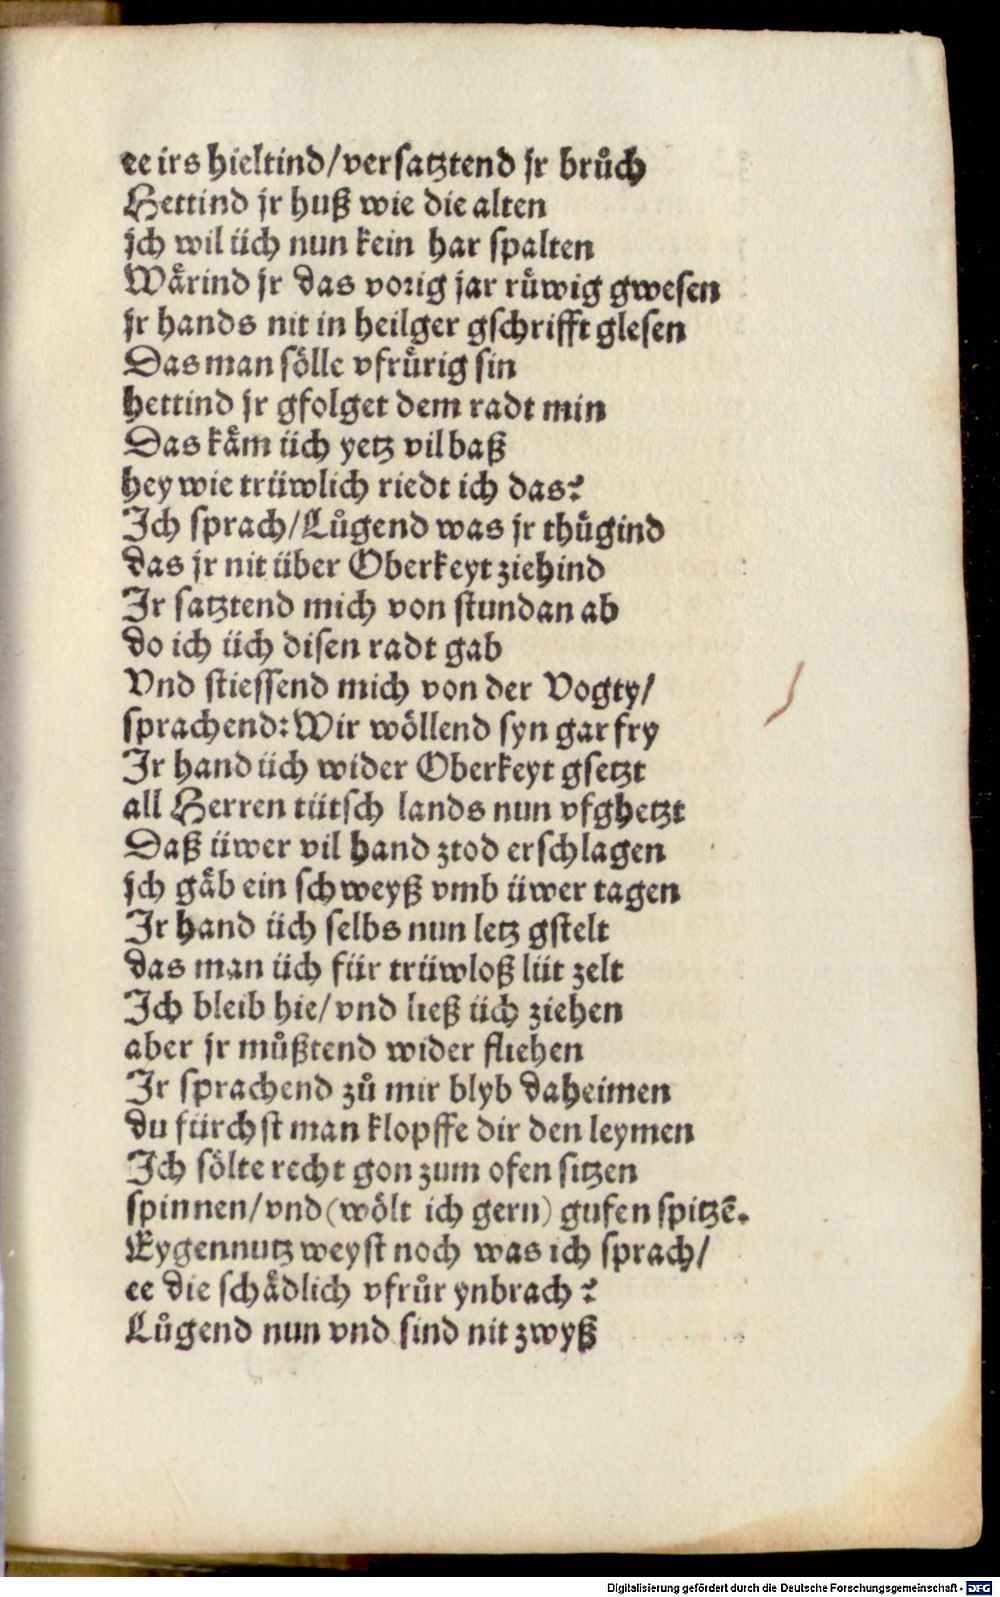 ee irs hieltind/versatztend jr bruͦch
Hettind jr huß wie die alten
ich wil üch nun kein har spalten
Waͤrind jr das vorig jar ruͤwig gwesen
jr hands nit in heilger gschrifft glesen
Das man soͤlle vfruͤrig sin
hettind jr gfolget dem radt min
Das kaͤm üch yetz vil baß
hey wie trüwlich riedt ich das?
Ich sprach/Luͦgend was jr thuͤgind
das jr nit über Oberkeyt ziehind
Ir satztend mich von stundan ab
do ich üch disen radt gab
Vnd stiessend mich von der Vogty/
sprachend: Wir woͤllend syn gar fry
Ir hand üch wider Oberkeyt gsetzt
all Herren tütsch lands nun vfghetzt
Daß üwer vil hand ztod erschlagen
ich gaͤb ein schweyß vmb üwer tagen
Ir hand üch selbs nun letz gstelt
das man üch für trüwloß lüt zelt
Ich bleib hie/vnd ließ üch ziehen
aber jr muͦßtend wider fliehen
Ir sprachend zuͦ mir blyb daheimen
du fürchst man klopffe dir den leymen
Ich soͤlte recht gon zum ofen sitzen
spinnen/vnd (woͤlt ich gern) gufen spitzē.
Eygennutz weyst noch was ich sprach/
ee die schaͤdlich vfruͦr ynbrach?
Luͦgend nun vnd sind nit zwyß
Digitalisierung gefördert durch die Deutsche Forschungsgemeinschaft - DFG